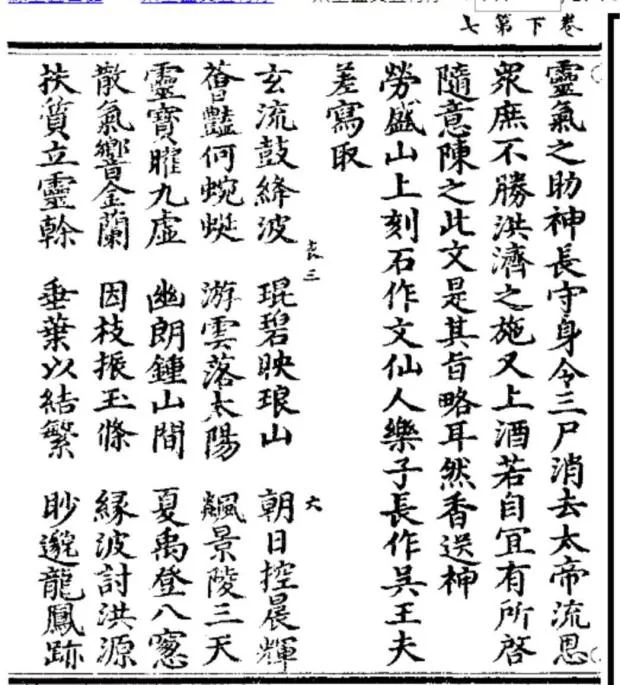 卷下第七
靈氣之助神長守身令三尸消去太帝流恩
眾庶不勝洪濟之施又上酒若自宜有所啓
隨意陳之此文是其旨略耳然香送神
勞盛山上刻石作文仙人樂子長作吳王夫
差寫取
玄流鼓絳波 琨碧映琅山 朝日控晨輝
蓊豔何蜿蜒 游雲落太陽 飇景陵三天
靈寶曜九虛 幽朗鍾山間 夏禹登八窻
散氣響金蘭 因枝振玉條 緣波討洪源
扶質立靈幹 垂葉以結繁 眇邈龍鳳跡
袁三
六